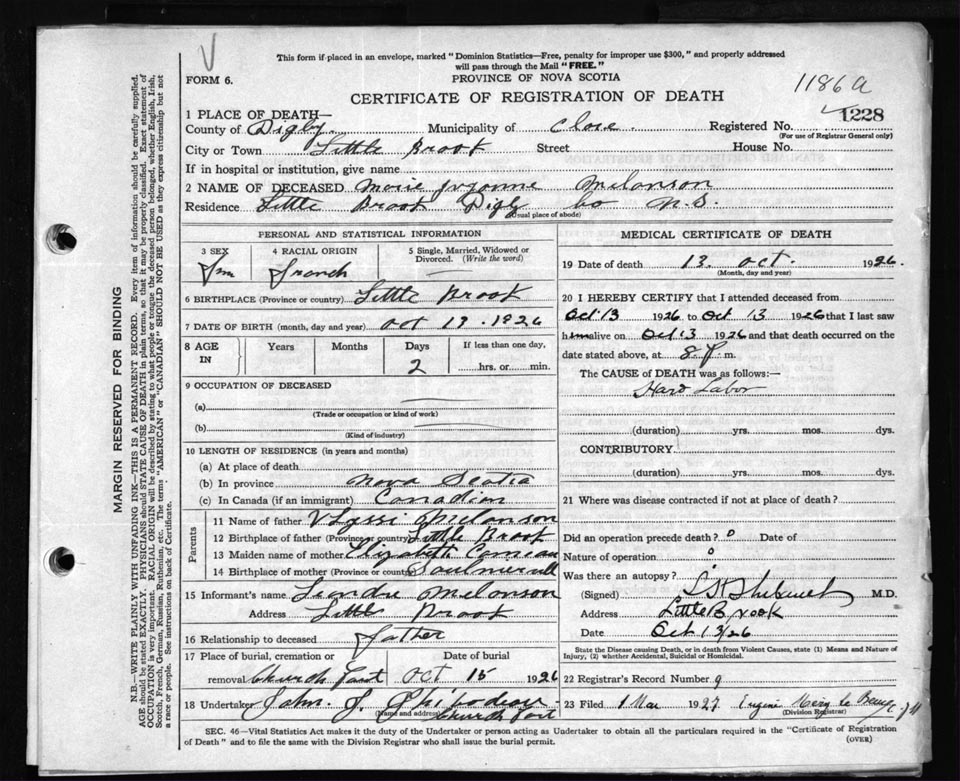 This form if placed in an envelope, marked "Dominion Statistics—Free, penalty for improper use $300," and properly addressed
will pass through the Mail "FREE."
FORM 6.
PROVINCE OF NOVA SCOTIA
1186a
CERTIFICATE OF REGISTRATION OF DEATH
1228
1 PLACE OF DEATH—
County of Digby. Municipality of Clare. Registered No.
(For use of Registrar General only)
City or Town Little Brook Street House No.
If in hospital or institution, give name
2 NAME OF DECEASED Marie Yvonne Melanson
Residence Little Brook Digby co N.S.
(Usual place of abode)
PERSONAL AND STATISTICAL INFORMATION
3 SEX
4 RACIAL ORIGIN
French
5 Single, Married, Widowed or
Divorced. (Write the word)
6 BIRTHPLACE (Province or country) Little Brook
7 DATE OF BIRTH (month, day and year) Oct 1926
8 AGE IN Years Months Days If less than one day,
2 hrs. or min.
9 OCCUPATION OF DECEASED
(a)
(Trade or occupation or kind of work)
(b)
(Kind of industry)
10 LENGTH OF RESIDENCE (in years and months)
(a) At place of death
(b) In province Nova Scotia
(c) In Canada (if an immigrant) Canadian
Parents
11 Name of father Melanson
12 Birthplace of father (Province or country) Little Brook
13 Maiden name of mother Elizabeth Comeau
14 Birthplace of mother (Province or country)
15 Informant's name Melanson
Address Little Brook
16 Relationship to deceased father
17 Place of burial, cremation or Date of burial
removal Church Point Oct 15 1926
18 Undertaker John J.
(Name and address) Church Point
MEDICAL CERTIFICATE OF DEATH
19 Date of death 13 Oct. 1926.
(Month, day and year)
20 I HEREBY CERTIFY that I attended deceased from
Oct 13 1926 to Oct 13 1926 that I last saw
h alive on Oct 13 1926 and that death occurred on the
date stated above, at 8 P. m.
The CAUSE of DEATH was as follows:—
Hard Labor
(duration) yrs. mos. dys.
CONTRIBUTORY.
(duration) yrs. mos. dys.
21 Where was disease contracted if not at place of death?
Did an operation precede death? o Date of
Nature of operation o
Was there an autopsy?
(Signed) M.D.
Address Little Brook
Date Oct 13/26
State the Disease causing Death, or in death from Violent Causes, state (1) Means and Nature of
Injury, (2) whether Accidental, Suicidal or Homicidal.
22 Registrar's Record Number 9
23 Filed 1 Mar 1927 Eugene
(Division Registrar)
SEC. 46—Vital Statistics Act makes it the duty of the Undertaker or person acting as Undertaker to obtain all the particulars required in the "Certificate of Registration
of Death" and to file the same with the Division Registrar who shall issue the burial permit.
(OVER)
MARGIN RESERVED FOR BINDING
N.B.—WRITE PLAINLY WITH UNFADING INK—THIS IS A PERMANENT RECORD. Every item of information should be carefully supplied.
AGE should be stated EXACTLY. PHYSICIANS should STATE CAUSE OF DEATH in plain terms, so that it may be properly classified. Exact statement of
OCCUPATION is very important. RACIAL ORIGIN will be described by stating to what people or tongue the deceased person belonged, whether English, Irish,
Scotch, French, German, Russian, Ruthenian, etc. The terms "AMERICAN" or "CANADIAN" SHOULD NOT BE USED as they express citizenship but not
a race or people. See instructions on back of Certificate.